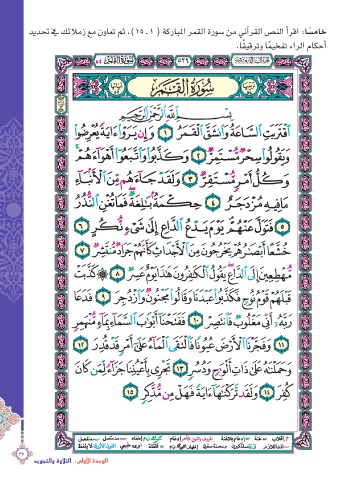 خامسًا: اقرأ النص القرآني من سورة القمر المباركة ( ١ـ ١٥)، ثم تعاون مع زملائك في تحديد
أحكام الراء تفخيمًا وترقيقًا.
سُورَةُ القَمَرِ ٥٤
٥٢٩
سُورَةُ القَمَرِ
بِسْمِ اللَّهِ الرَّحْمَٰنِ الرَّحِيمِ
اقْتَرَبَتِ السَّاعَةُ وَانشَقَّ الْقَمَرُ ١ وَإِن يَرَوْا آيَةً يُعْرِضُوا
وَيَقُولُوا سِحْرٌ مُّسْتَمِرٌّ ٢ وَكَذَّبُوا وَاتَّبَعُوا أَهْوَاءَهُمْ
وَكُلُّ أَمْرٍ مُّسْتَقِرٌّ ٣ وَلَقَدْ جَاءَهُم مِّنَ الْأَنبَاءِ
مَا فِيهِ مُزْدَجَرٌ ٤ حِكْمَةٌ بَالِغَةٌ فَمَا تُغْنِ النُّذُرُ
٥ فَتَوَلَّ عَنْهُمْ يَوْمَ يَدْعُ الدَّاعِ إِلَىٰ شَيْءٍ نُّكُرٍ ٦
خُشَّعًا أَبْصَارُهُمْ يَخْرُجُونَ مِنَ الْأَجْدَاثِ كَأَنَّهُمْ جَرَادٌ مُّنتَشِرٌ ٧
مُّهْطِعِينَ إِلَى الدَّاعِ يَقُولُ الْكَافِرُونَ هَٰذَا يَوْمٌ عَسِرٌ ٨ ۞ كَذَّبَتْ
قَبْلَهُمْ قَوْمُ نُوحٍ فَكَذَّبُوا عَبْدَنَا وَقَالُوا مَجْنُونٌ وَازْدُجِرَ ٩ فَدَعَا
رَبَّهُ أَنِّي مَغْلُوبٌ فَانتَصِرْ ١٠ فَفَتَحْنَا أَبْوَابَ السَّمَاءِ بِمَاءٍ مُّنْهَمِرٍ
١١ وَفَجَّرْنَا الْأَرْضَ عُيُونًا فَالْتَقَى الْمَاءُ عَلَىٰ أَمْرٍ قَدْ قُدِرَ ١٢
وَحَمَلْنَاهُ عَلَىٰ ذَاتِ أَلْوَاحٍ وَدُسُرٍ ١٣ تَجْرِي بِأَعْيُنِنَا جَزَاءً لِّمَن كَانَ
كُفِرَ ١٤ وَلَقَد تَّرَكْنَاهَا آيَةً فَهَلْ مِن مُّدَّكِرٍ ١٥
الوحدة الأولى: التلاوة والتجويد